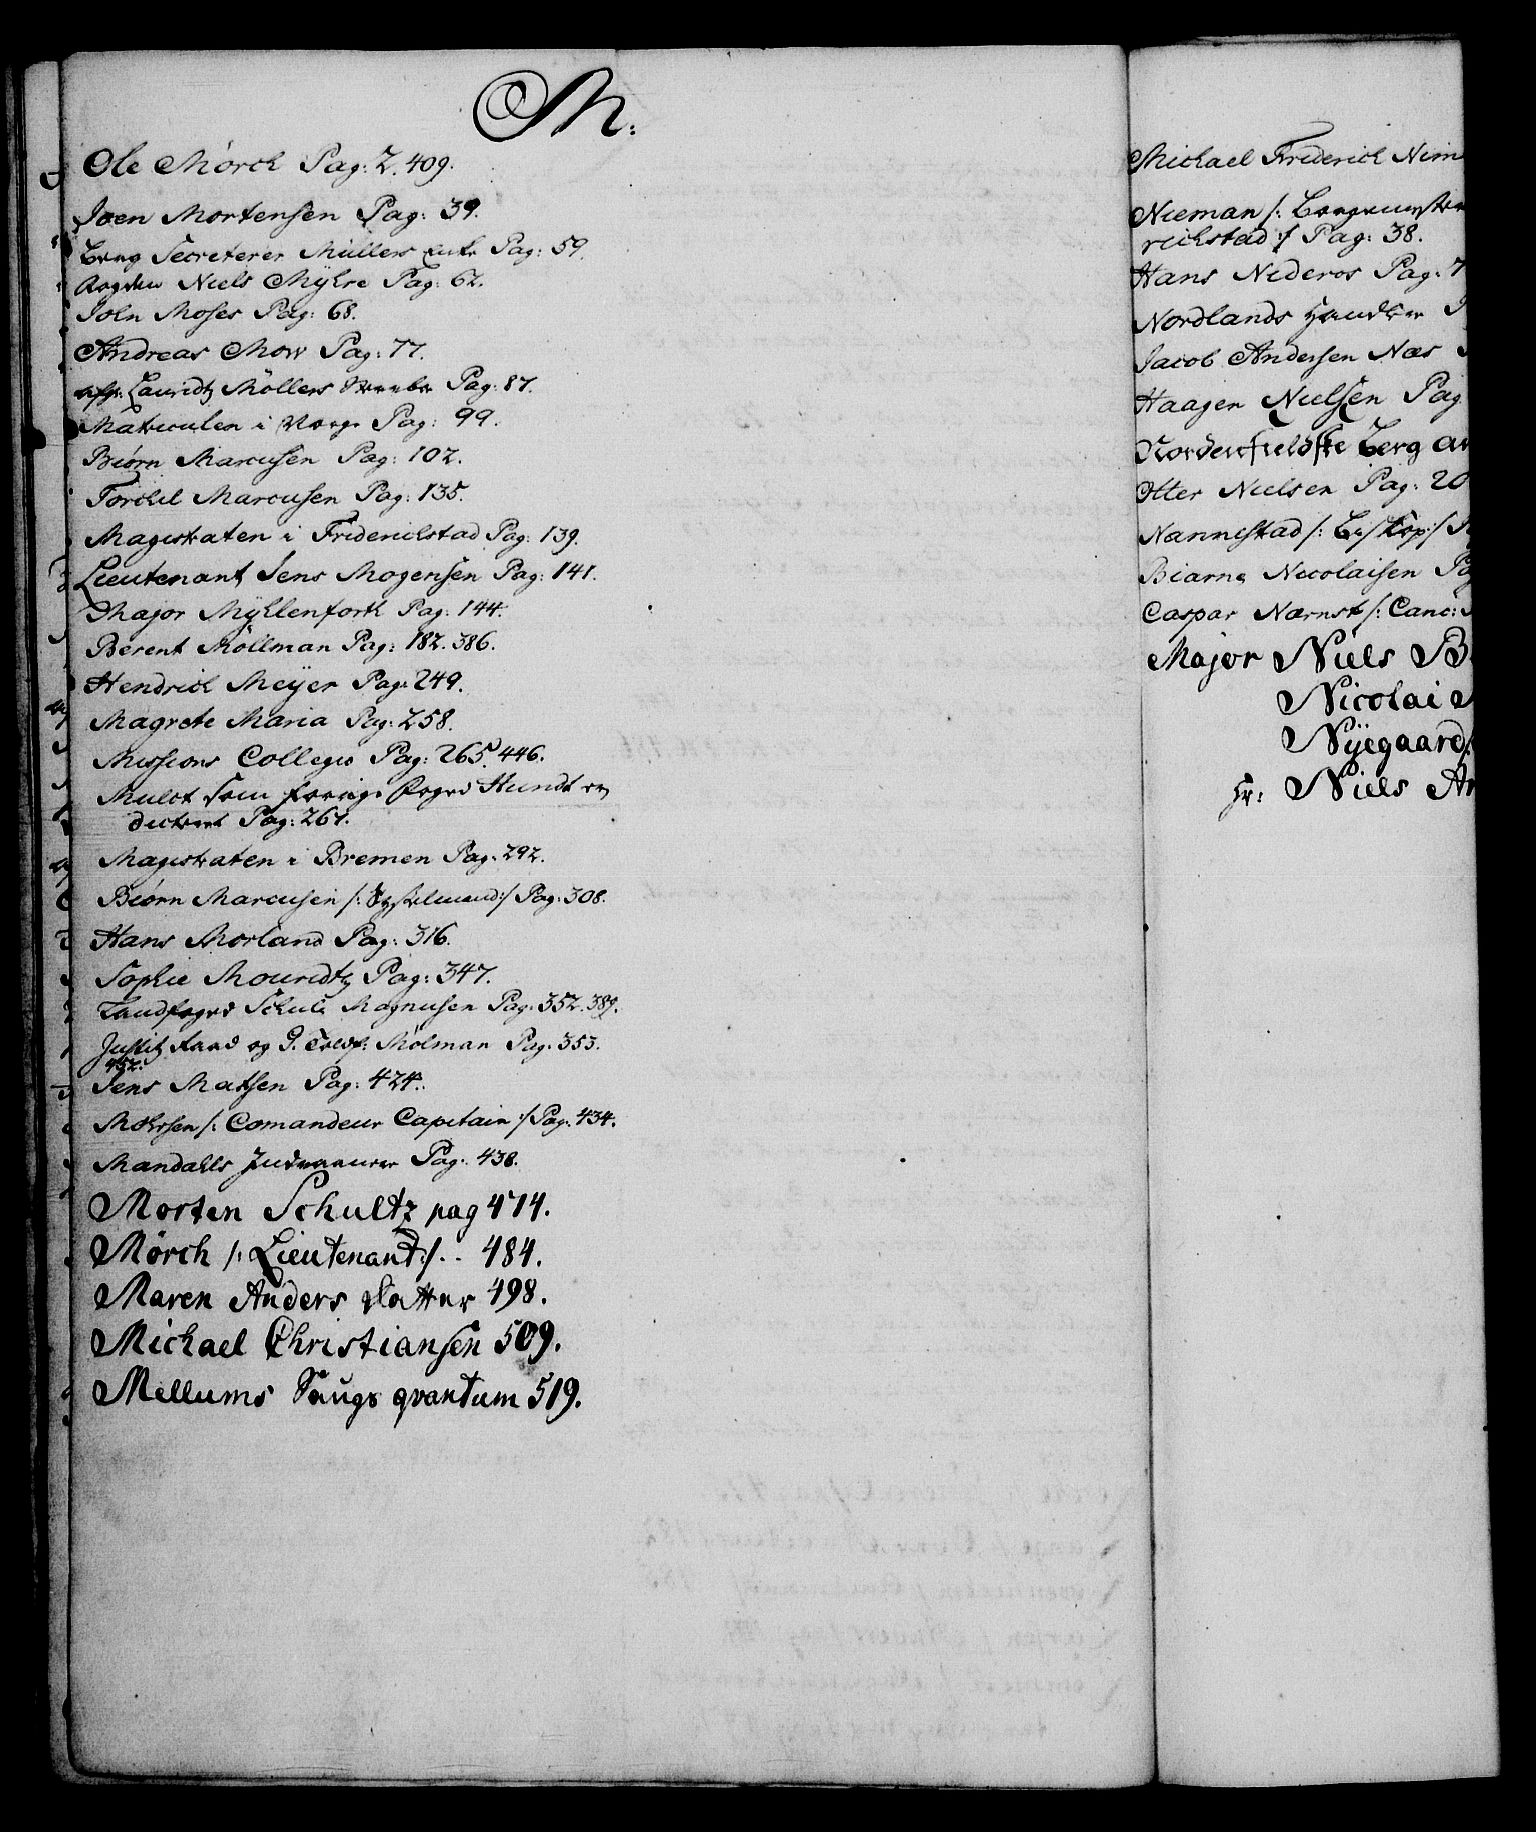 M:
Ole Mørch Pag: 2. 409.
Joen Mortensen Pag: 39.
Berg Secreterer Müllers Enke Pag: 59.
Fogden Niels Myhre Pag: 62.
John Moses Pag: 68.
Andreas Mow Pag: 77.
afg: Lauridtz Möllers Pag: 87.
Matriculen i Norge Pag: 99.
Biørn Marcusen Pag: 102.
Torchil Marcusen Pag: 135.
Magistraten i Friderichstad Pag: 139.
Lieutenant Jens Mogensen Pag: 141.
Major Myhlenforth Pag: 144.
Berent Möllman Pag: 182. 386.
Hendrich Meyer Pag: 249.
Magrete Maria Pag: 258.
Missions Collegio Pag: 265. 446.
Mulct som forrige Foged Hundt er
dicteret Pag: 267.
Magistraten i Bremen Pag: 292.
Biørn Marcusen /: Sysselmand :/ Pag: 308.
Hans Morland Pag: 316.
Sophie Mouridtz Pag: 347.
Landfoged Schule Magnusen Pag: 352. 389.
Justitz Raad og G. Toldf: Mölman Pag: 353.
452.
Jens Matsen Pag: 424.
Mohrsen /: Comandeur Capitain :/ Pag: 434.
Mandahls Indvaanere Pag: 438.
Morten Schultz pag 474.
Mörch /: Lieutenant :/ - - 484.
Maren Anders Datter 498.
Michael Christiansen 509.
Mellums Saugs qvantum 519.
Michael Friderich Nim
Nieman /: Borgemester
richstad :/ Pag: 38.
Hans Nideros Pag: 7
Nordlands Handler
Jacob Andersen Næs
Haagen Nielsen Pag
Nordenfieldske Berg
Otter Nielsen Pag: 20
Nannestad /: Biskop :/
Biarne Nicolaisen Pag
Caspar Nærnst /: Canc:
Major Niels B
Nicolai
Nyegaard /:
Hr: Niels